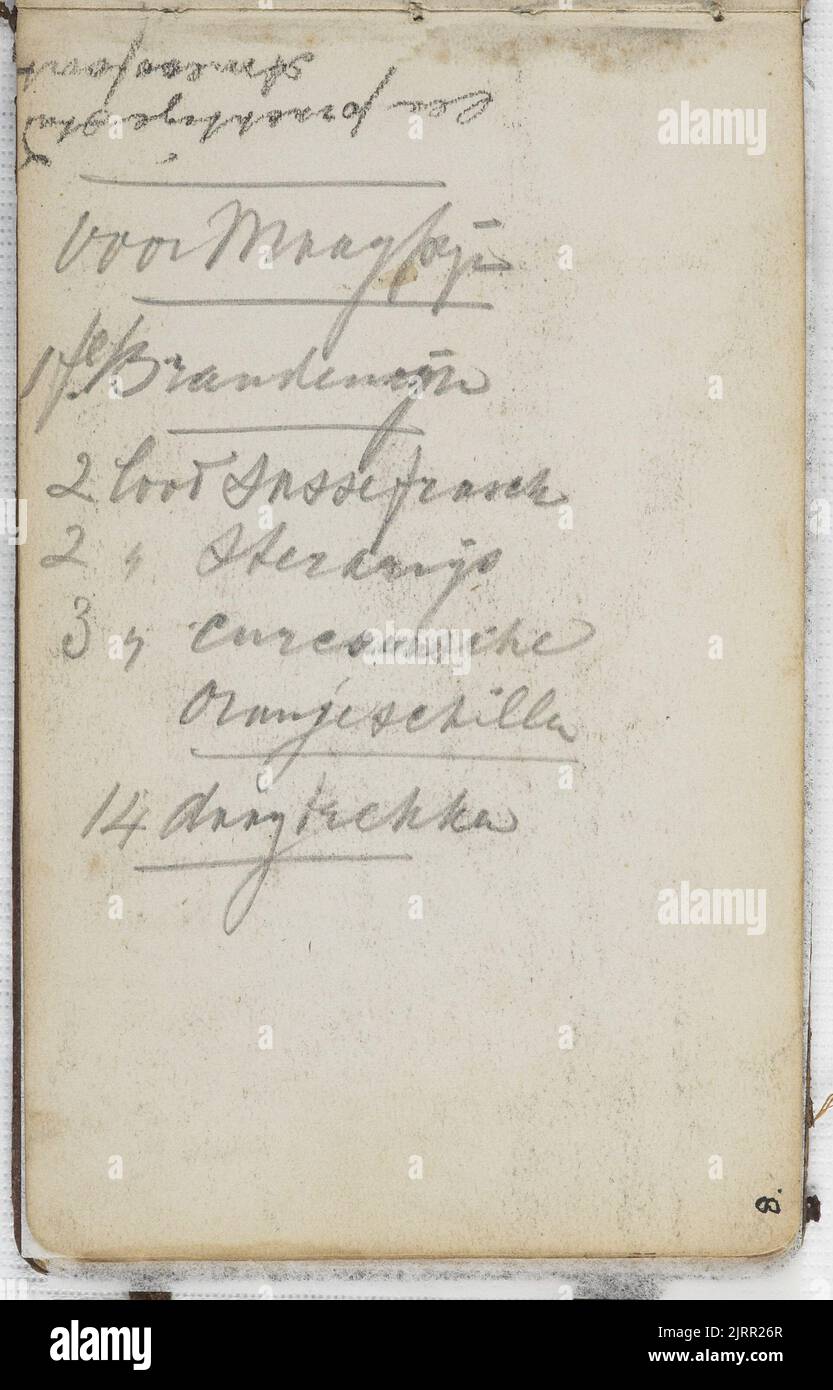 een prachtige stad
voor Maagpijn
1 fles Brandewijn
2 lood Sassefrasch
2 " Steranijs
3 " curcaousche
Oranjeschillen
14 daag trekken
8.
alamy
alamy
alamy
Image ID: 2JRR26R
www.alamy.com